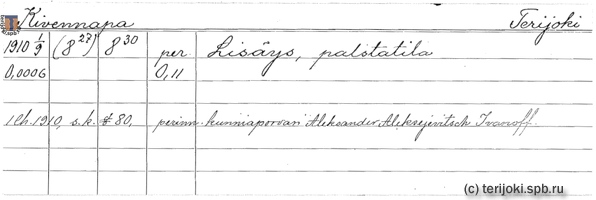 Kivennapa Terijoki
1910 1/9 (8 27) 8 30 per. Lisäys, palstatila
0,0006 0,11
1 lh. 1910, s.k. # 80, perinn. kunniaporvari Aleksander Aleksejevitsch Ivanoff.
(c) terijoki.spb.ru